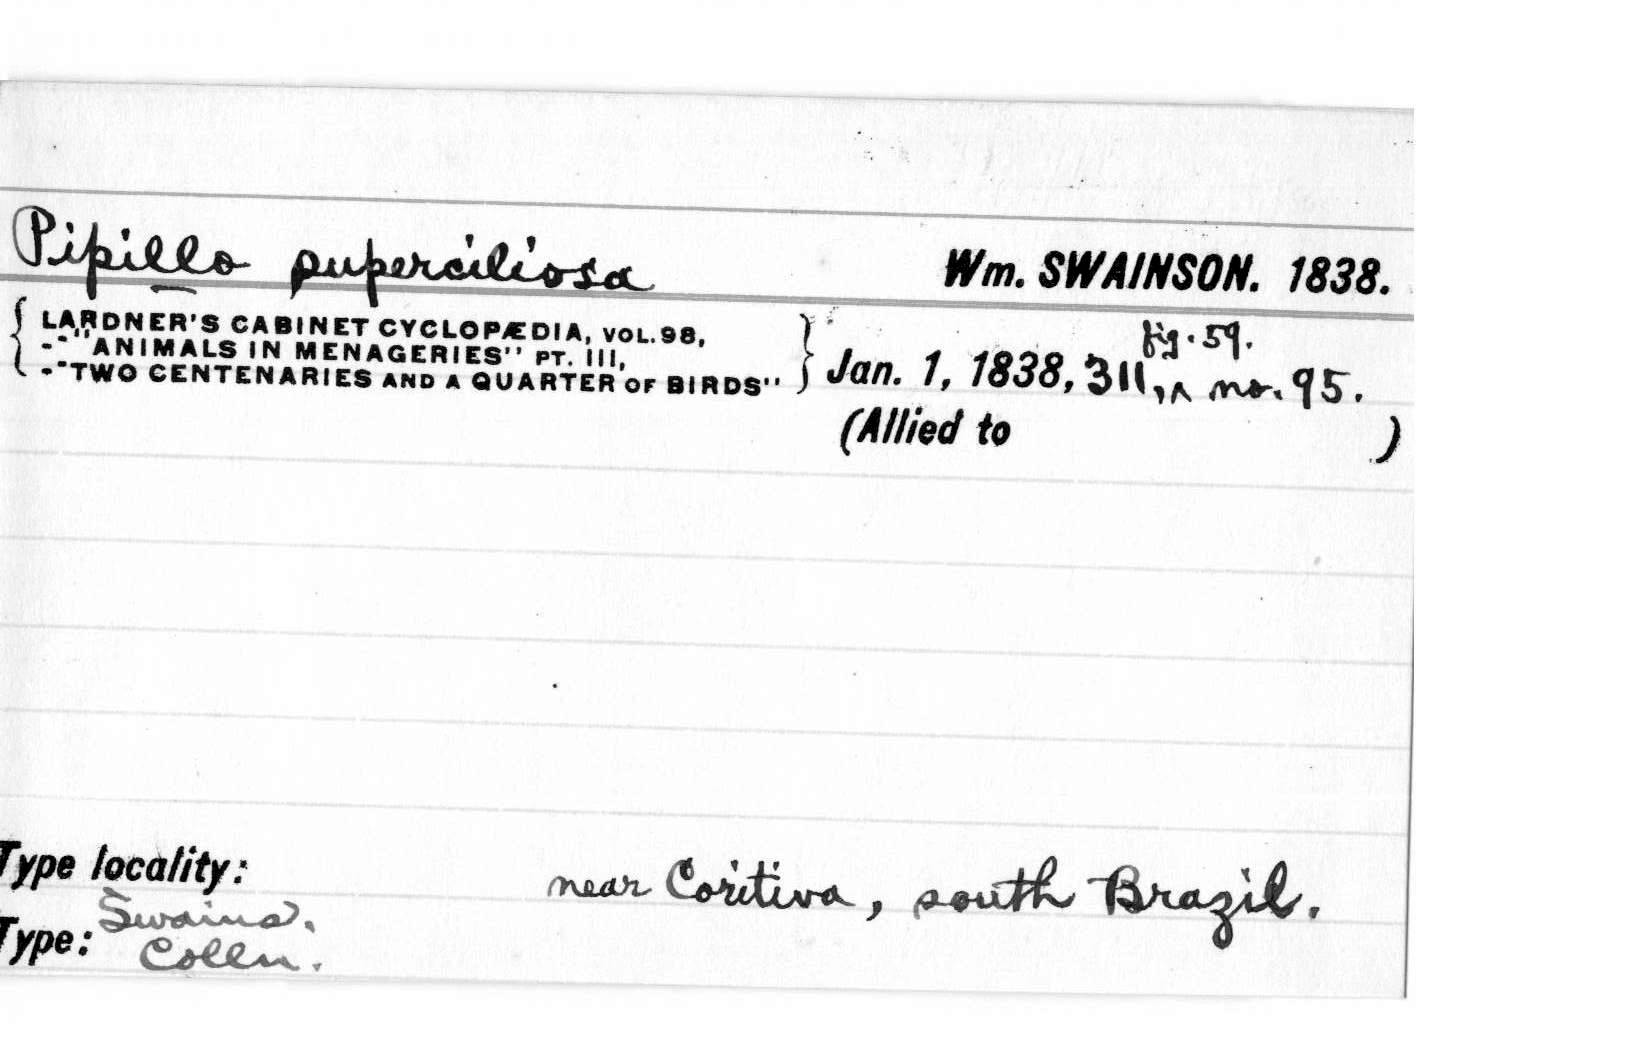 Pipillo superciliosa Wm. SWAINSON. 1838.
{ LARDNER'S CABINET CYCLOPÆDIA, VOL.98,
-"ANIMALS IN MENAGERIES" PT. III,
-"TWO CENTENARIES AND A QUARTER OF BIRDS" } Jan. 1, 1838, 311, ^ fig. 59. no. 95.
(Allied to )
Type locality: near Coritiva, south Brazil.
Type: Swains. Colln.